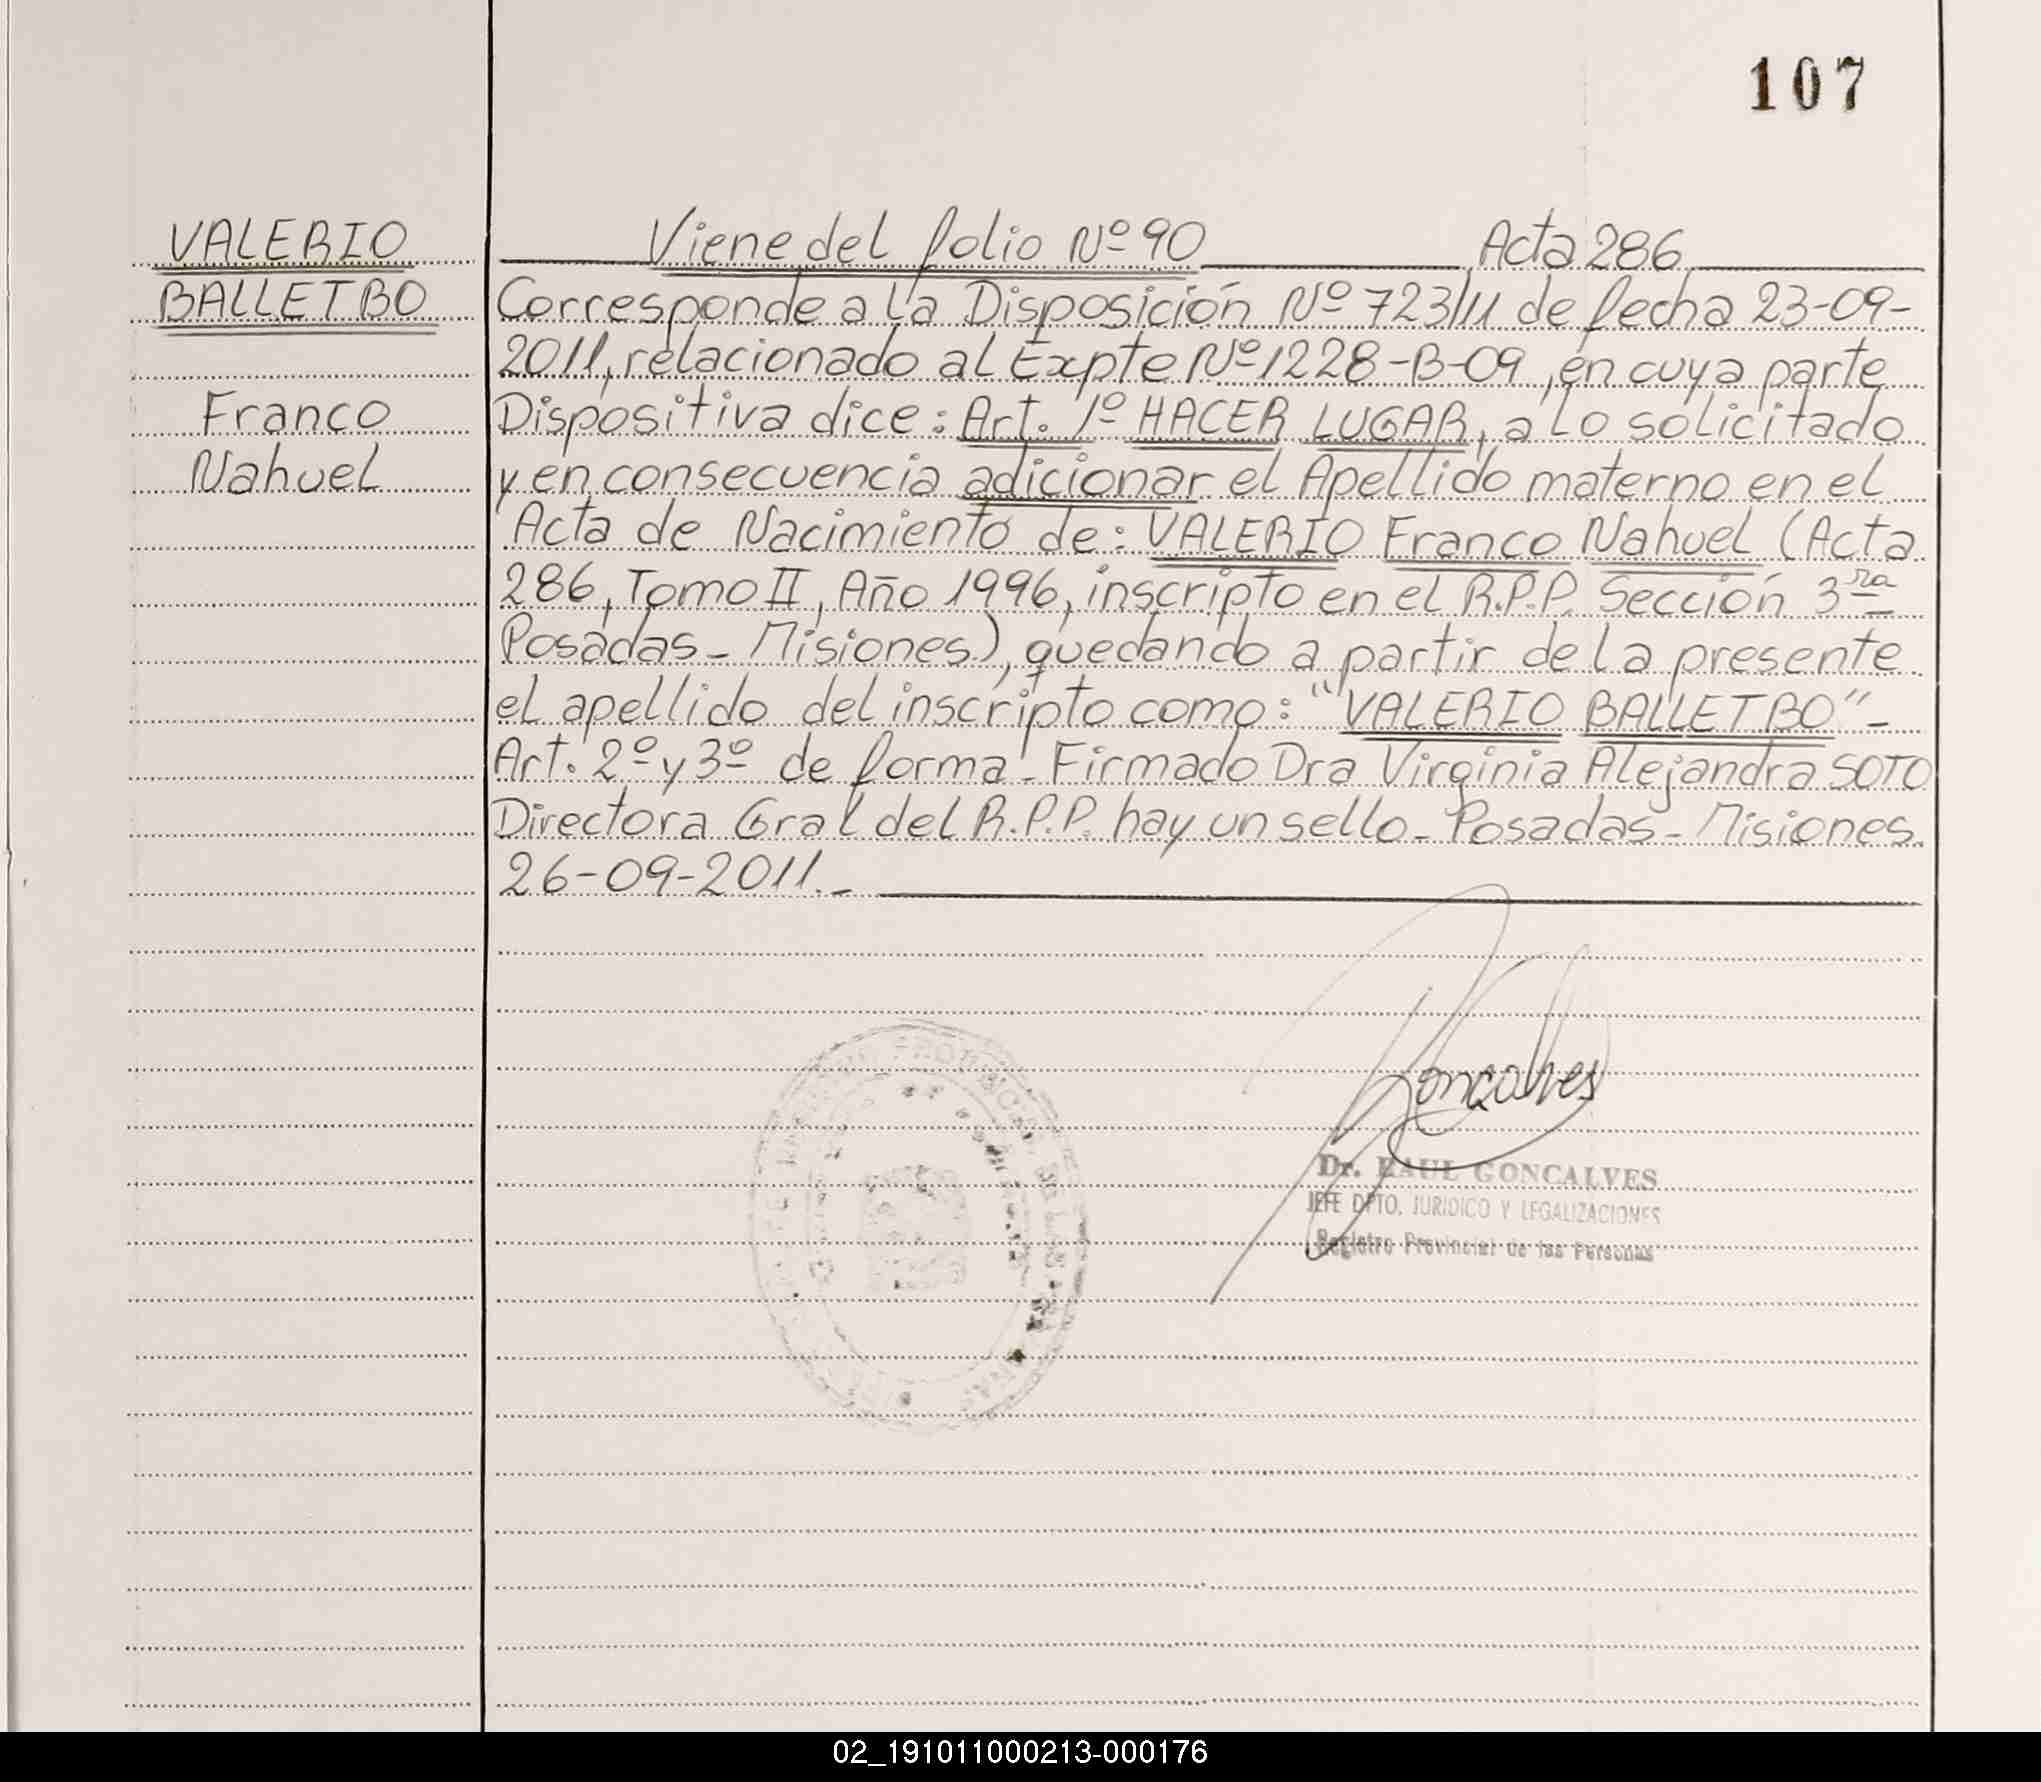 107
VALERIO
BALLETBO
Franco
Nahuel
Viene del folio Nº 90 Acta 286
Corresponde a la Disposición Nº 723/11 de fecha 23-09-
2011, relacionado al Expte Nº 1228-B-09, en cuya parte
Dispositiva dice: Art. 1º HACER LUGAR, a lo solicitado
y en consecuencia adicionar el Apellido materno en el
Acta de Nacimiento de: VALERIO Franco Nahuel (Acta
286, Tomo II, Año 1996, inscripto en el R.P.P. Sección 3ra
Posadas - Misiones), quedando a partir de la presente
el apellido del inscripto como: "VALERIO BALLETBO"-
Art. 2º y 3º de forma - Firmado Dra Virginia Alejandra SOTO
Directora Gral del R.P.P. hay un sello - Posadas - Misiones.
26-09-2011.-
Goncalves
Dr. RAUL GONCALVES
JEFE DPTO. JURIDICO Y LEGALIZACIONES
Registro Provincial de las Personas
02_191011000213-000176